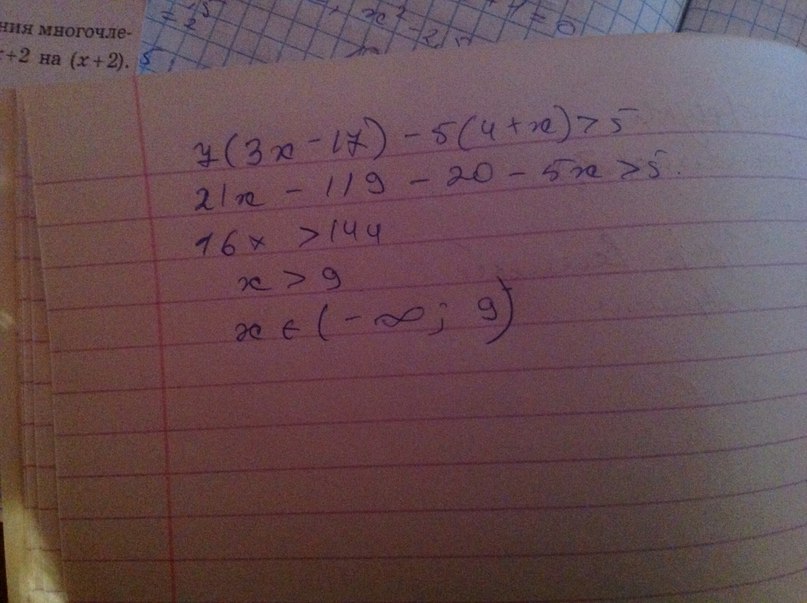 ния многочле-
+2 на (x+2).
7(3x-17)-5(4+x)>5
21x-119-20-5x>5.
16x >144
x>9
x∈(-∞; 9)